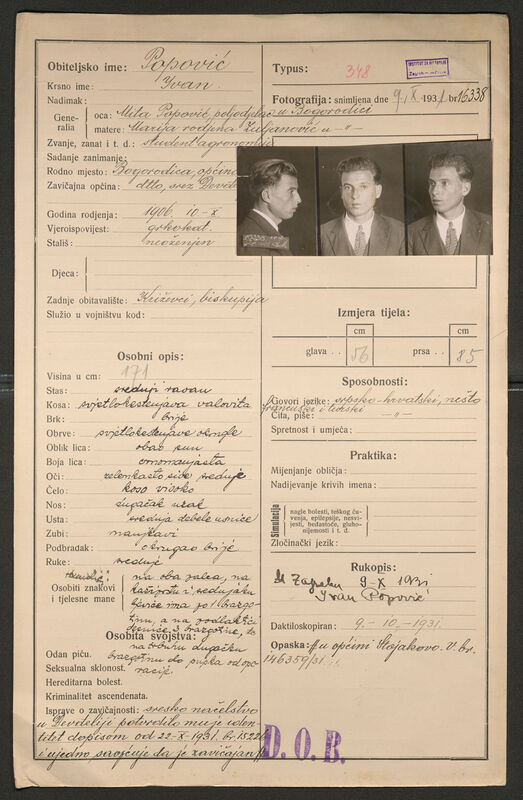 Obiteljsko ime: Popović
Krsno ime: Yvan.
Nadimak:
Generalia
oca: Mita Popović, poljodjelac u Bogorodici
matere: Marija rodjena u -"-
Zvanje, zanat i t. d.: student agronomije
Sadanje zanimanje:
Rodno mjesto: Bogorodica, općina
Zavičajna općina: dtto, srez
Godina rodjenja: 1906. 10-X
Vjeroispovijest: grkokat.
Stališ: neoženjen
Djeca:
Zadnje obitavalište: Križevci, biskupija
Služio u vojništvu kod:
Osobni opis:
Visina u cm: 171
Stas: srednji ravan
Kosa: svjetlokestenjava valovita
Brk: brije
Obrve: svjetlokestenjave okrugle
Oblik lica: obao pun
Boja lica: crnomanjasta
Oči: zelenkasto sive srednje
Čelo: koso visoko
Nos: dugačak uzak
Usta: srednja debele usnice
Zubi: manjkavi
Podbradak: okrugao brije
Ruke: srednje
Osobiti znakovi i tjelesne mane
na oba palca, na
kažiprstu i srednjaku
ljevice ima po 1 brazgo-
tinu, a na podlaktici
desnice 3 brazgotine, te
na trbuhu dugačku
brazgotinu do pupka od ope-
racije.
Osobita svojstva:
Odan piću.
Seksualna sklonost.
Hereditarna bolest.
Kriminalitet ascendenata.
Isprave o zavičajnosti: sresko načelstvo
u Devdeliji potvrdilo mu je iden-
titet dopisom od 22-X-1931. br. 15226
i ujedno saopćuje da je zavičajan
Typus: 348
Fotografija: snimljena dne 9. X 1931 No 16338
Izmjera tijela:
cm
cm
glava . . 56
prsa . . 85
Sposobnosti:
Govori jezike: srpsko-hrvatski, nešto
francuski i
Čita, piše: -"-
Spretnost i umjeća:
Praktika:
Mijenjanje obličja:
Nadijevanje krivih imena:
Simulacija
nagle bolesti, teškog ču-
venja, epilepsije, nesvi-
jesti, bedastoće, gluho-
nijemosti i t. d.
Zločinački jezik:
Rukopis:
U Zagrebu 9-X 1931
Yvan Popović
Daktiloskopiran: 9.-10.-1931.
Opaska: u općini Stojakovo. V. br.
146359/31.
D. O. B.